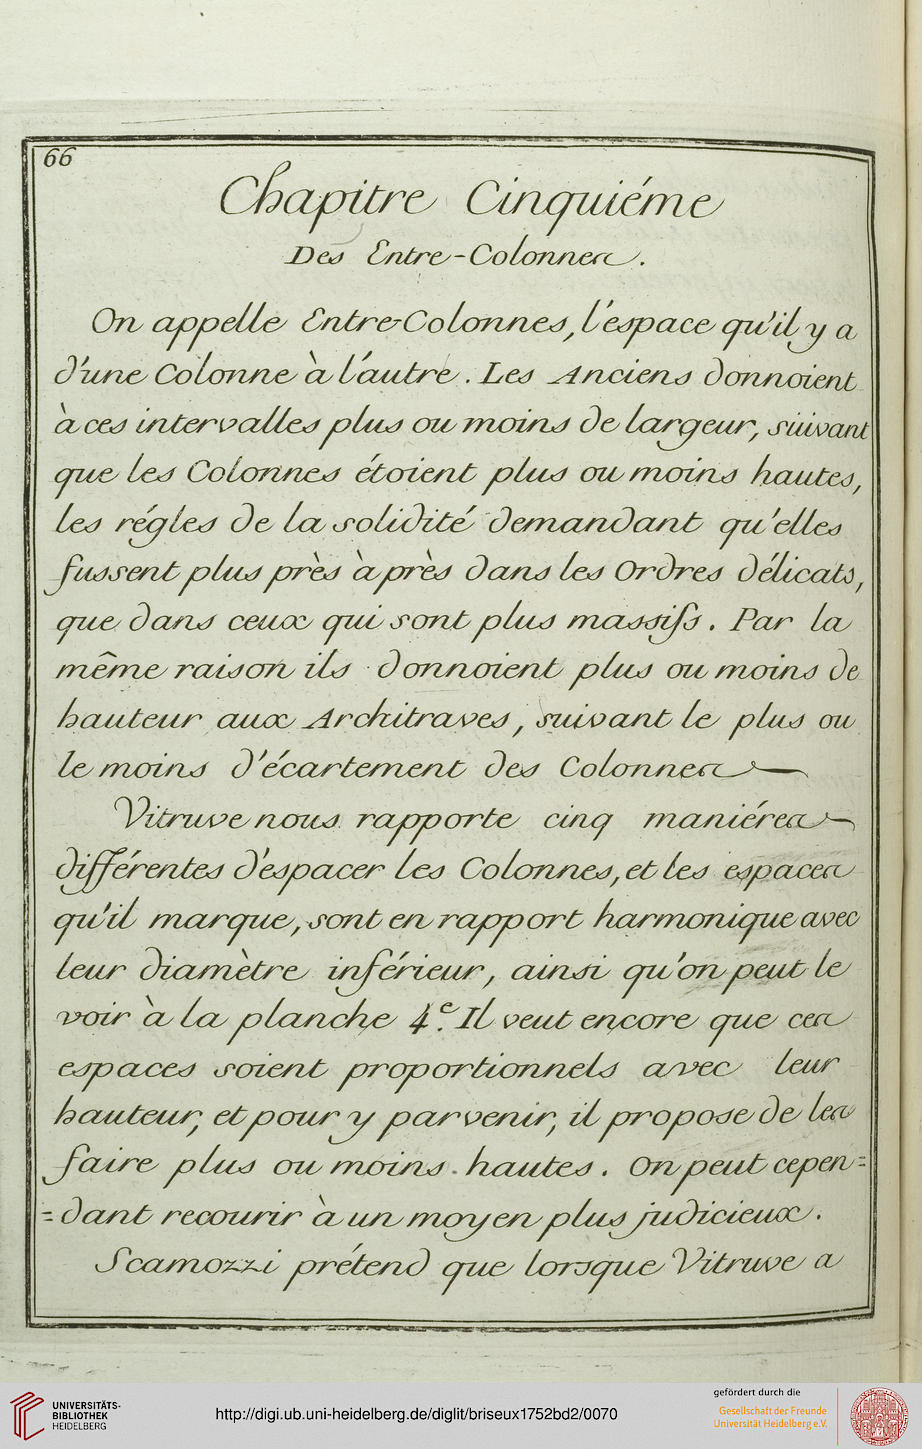 66
Chapitre Cinquiéme
Des Entre-Colonnes.
On appelle Entre-Colonnes, l'espace qu'il y a
d'une Colonne à l'autre. Les Anciens donnoient
à ces intervalles plus ou moins de largeur, suivant
que les Colonnes étoient plus ou moins hautes,
les régles de la solidité demandant qu'elles
fussent plus près à près dans les Ordres délicats,
que dans ceux qui sont plus massifs. Par la
même raison ils donnoient plus ou moins de
hauteur aux Architraves, suivant le plus ou
le moins d'écartement des Colonnes
Vitruve nous rapporte cinq maniéres
différentes d'espacer les Colonnes, et les espaces
qu'il marque, sont en rapport harmonique avec
leur diamètre inférieur, ainsi qu'on peut le
voir à la planche 4.e Il veut encore que ces
espaces soient proportionnels avec leur
hauteur, et pour y parvenir, il propose de les
faire plus ou moins hautes. On peut cepen=
=dant recourir à un moyen plus judicieux.
Scamozzi prétend que lorsque Vitruve a
UNIVERSITÄTS-
BIBLIOTHEK
HEIDELBERG
http://digi.ub.uni-heidelberg.de/diglit/briseux1752bd2/0070
gefördert durch die
Gesellschaft der Freunde
Universität Heidelberg e.V.